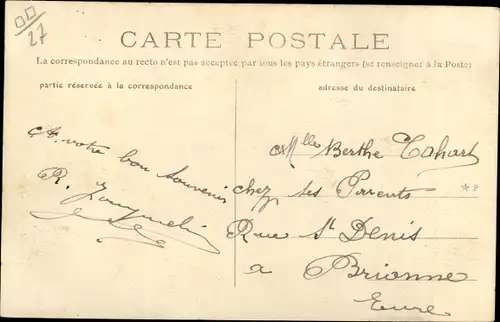 27
CARTE POSTALE
La correspondance au recto n'est pas acceptée par tous les pays étrangers (se renseigner à la Poste)
partie réservée à la correspondance
adresse du destinataire
A votre bon souvenir
R. Jacquelin
Mlle Berthe Cahart
chez ses Parents
Rue St Denis
a Brionne
Eure